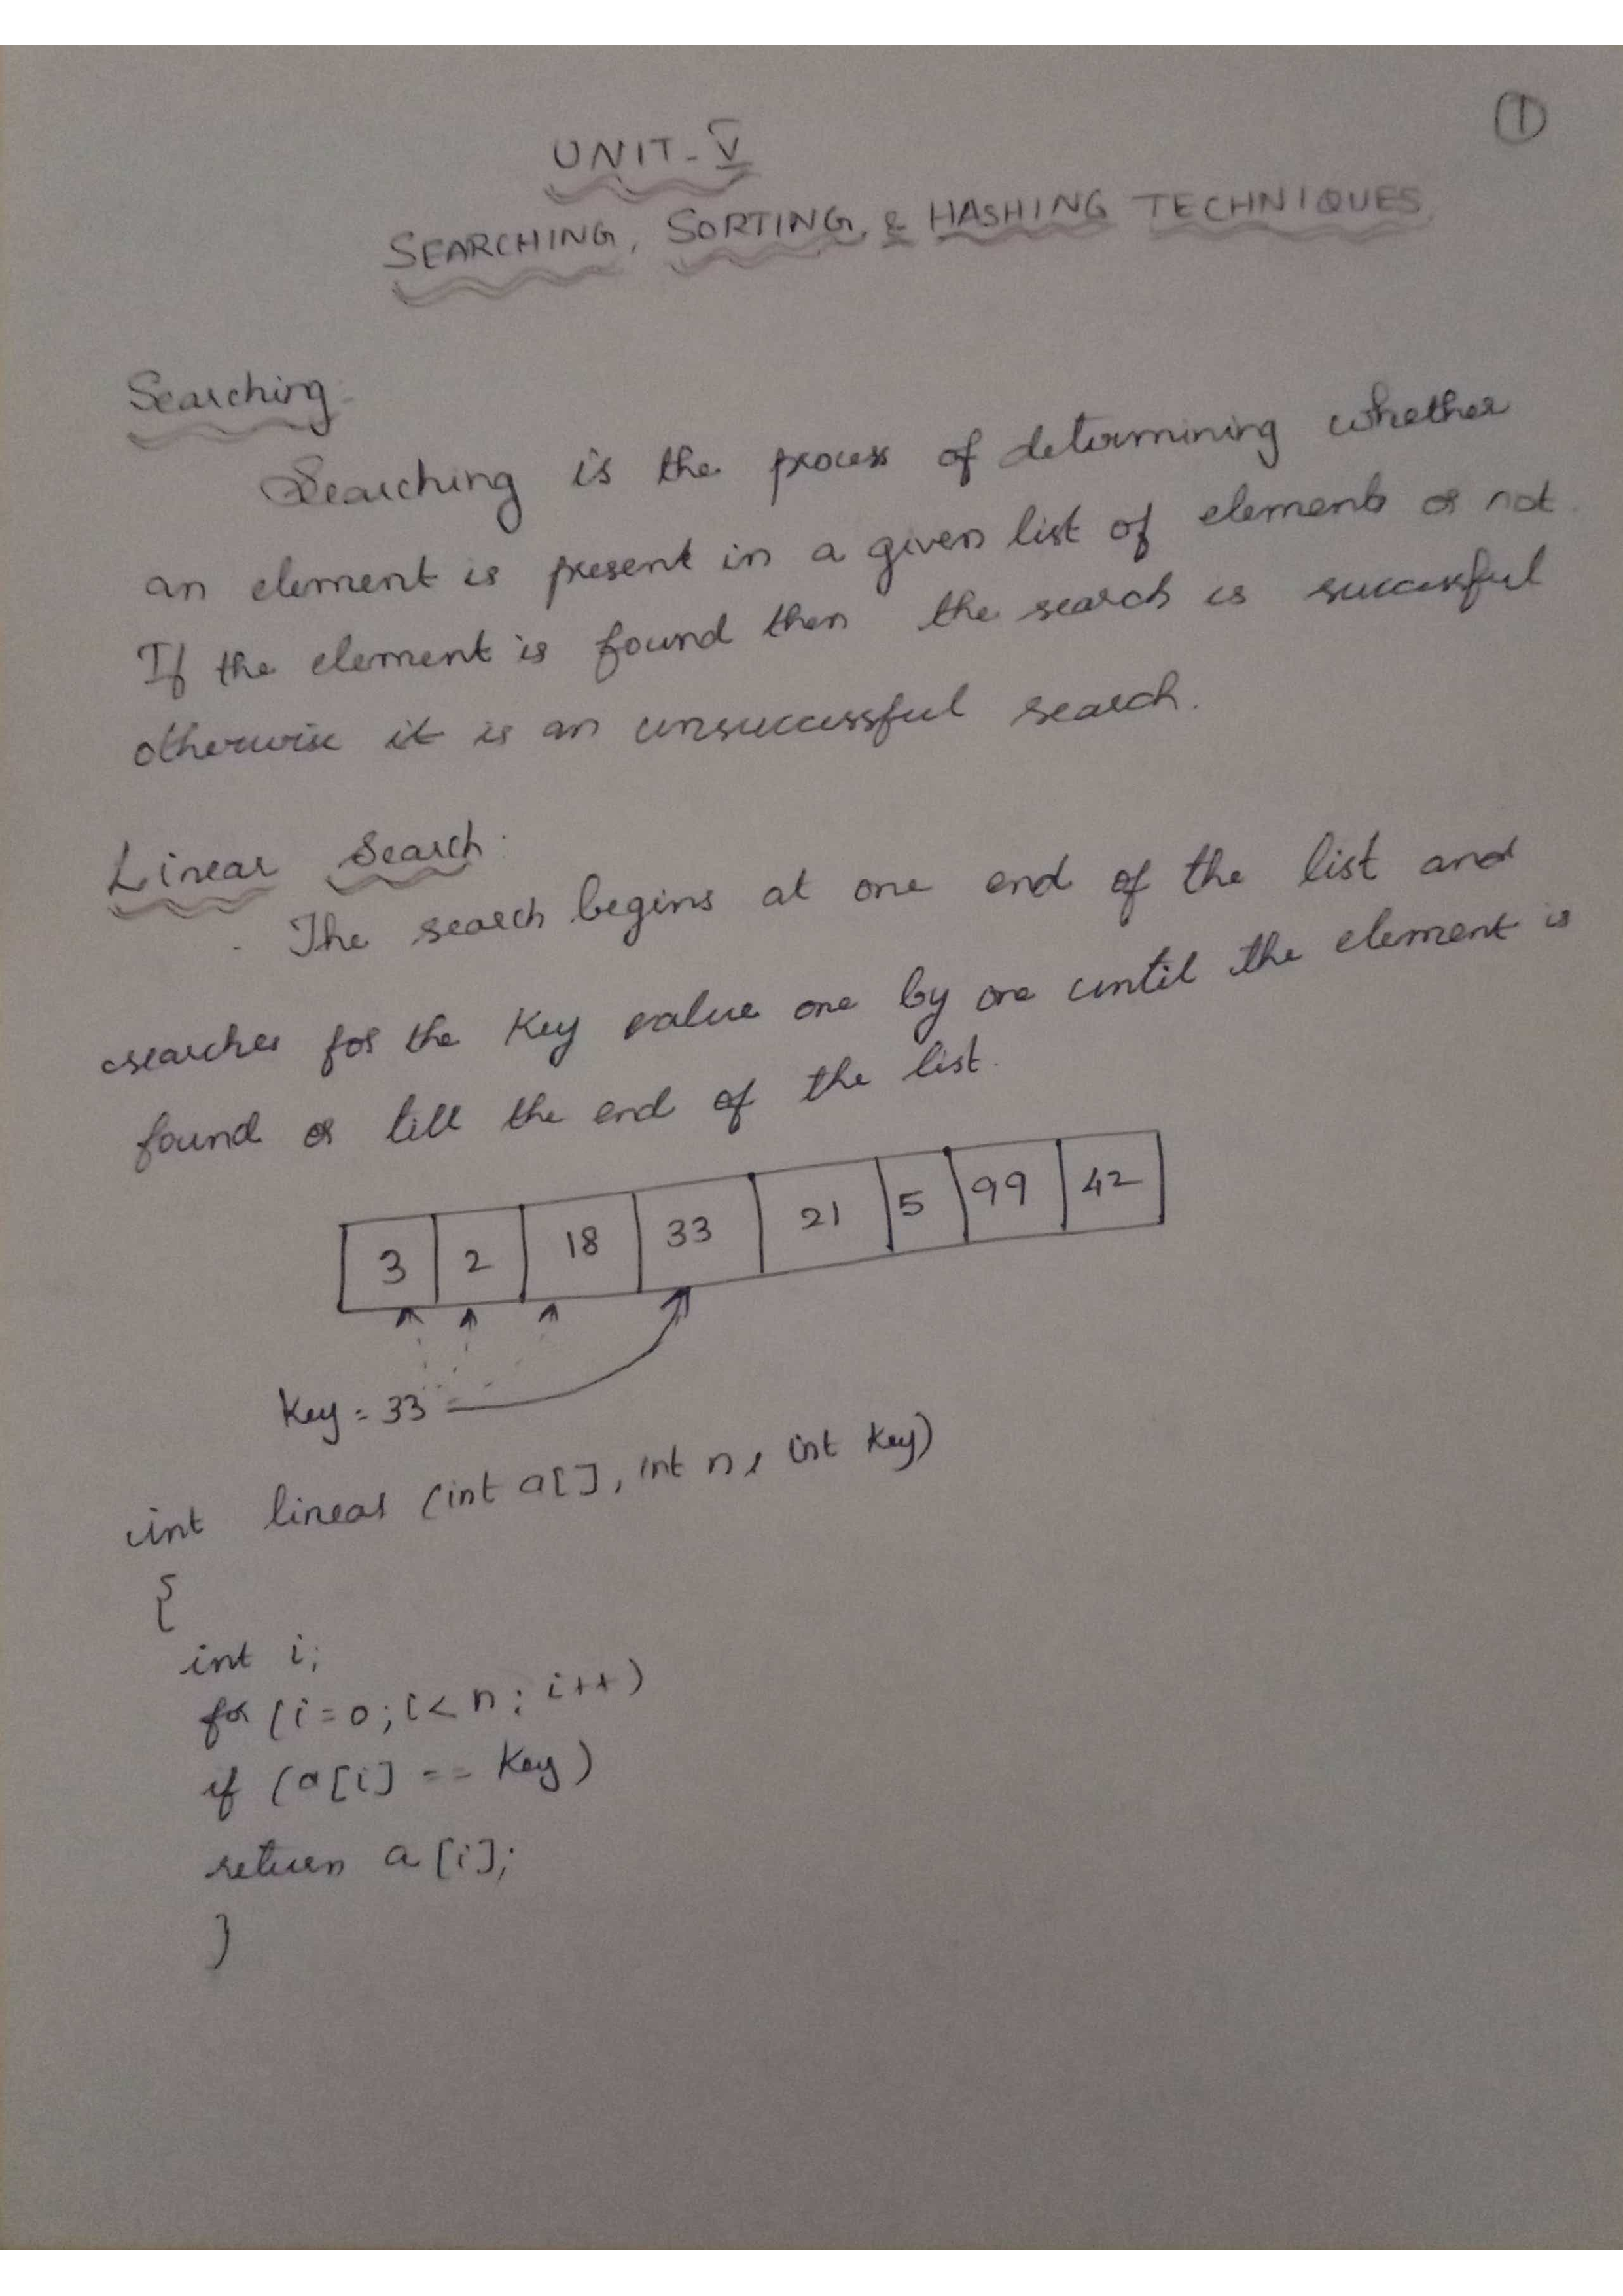 ①
UNIT-V
SEARCHING, SORTING, & HASHING TECHNIQUES.
Searching:
Searching is the process of determining whether
an element is present in a given list of elements or not.
If the element is found then the search is successful
otherwise it is an unsuccessful search.
Linear Search:
The search begins at one end of the list and
searches for the Key value one by one until the element is
found or till the end of the list.
3 2 18 33 21 5 99 42
Key = 33
int linear (int a[], int n, int Key)
{
int i;
for (i=0; i<n; i++)
if (a[i] == Key)
return a[i];
}